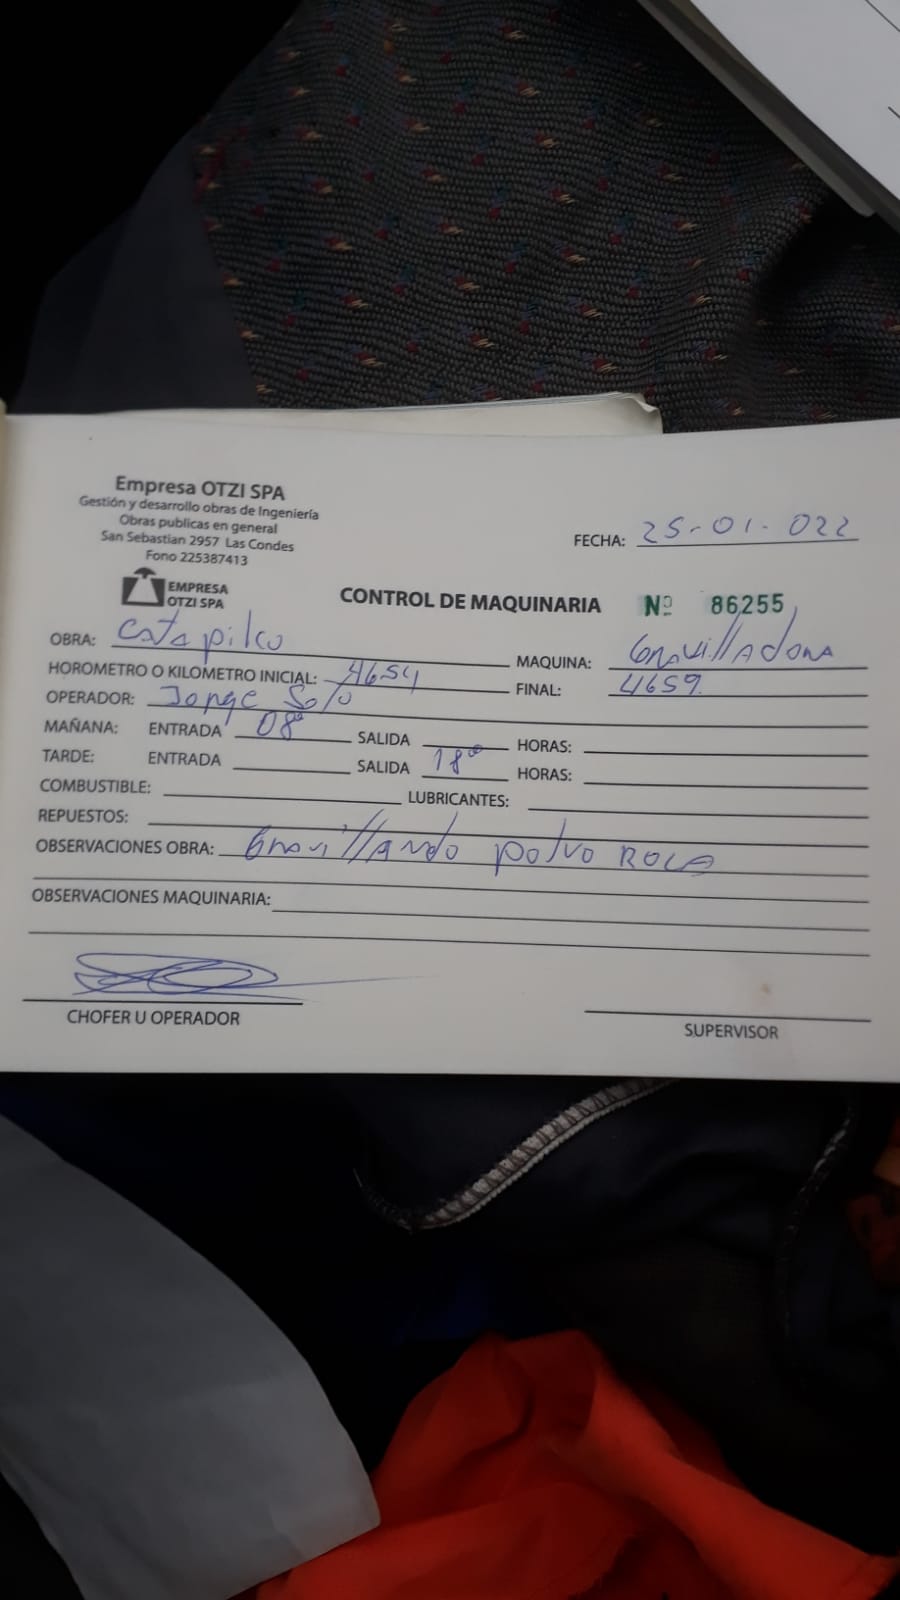 Empresa OTZI SPA
Gestión y desarrollo obras de Ingeniería
Obras publicas en general
San Sebastian 2957 Las Condes
Fono 225387413
EMPRESA
OTZI SPA
FECHA: 25-01-022
CONTROL DE MAQUINARIA Nº 86255
OBRA: Catapilco MAQUINA: Gravilladora
HOROMETRO O KILOMETRO INICIAL: 4654 FINAL: 4659
OPERADOR: Jorge Soto
MAÑANA: ENTRADA 08º SALIDA HORAS:
TARDE: ENTRADA SALIDA 18ºº HORAS:
COMBUSTIBLE: LUBRICANTES:
REPUESTOS:
OBSERVACIONES OBRA: Gravillando polvo ROCA
OBSERVACIONES MAQUINARIA:
CHOFER U OPERADOR SUPERVISOR